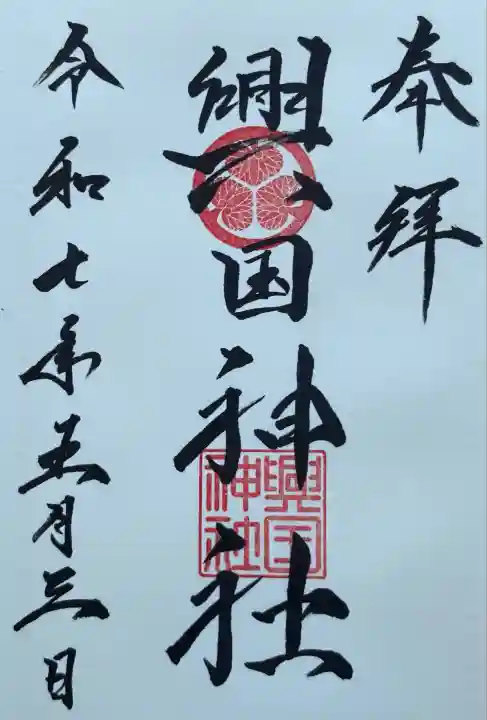 奉拜
興国神社
興国神社
令和七年五月三日